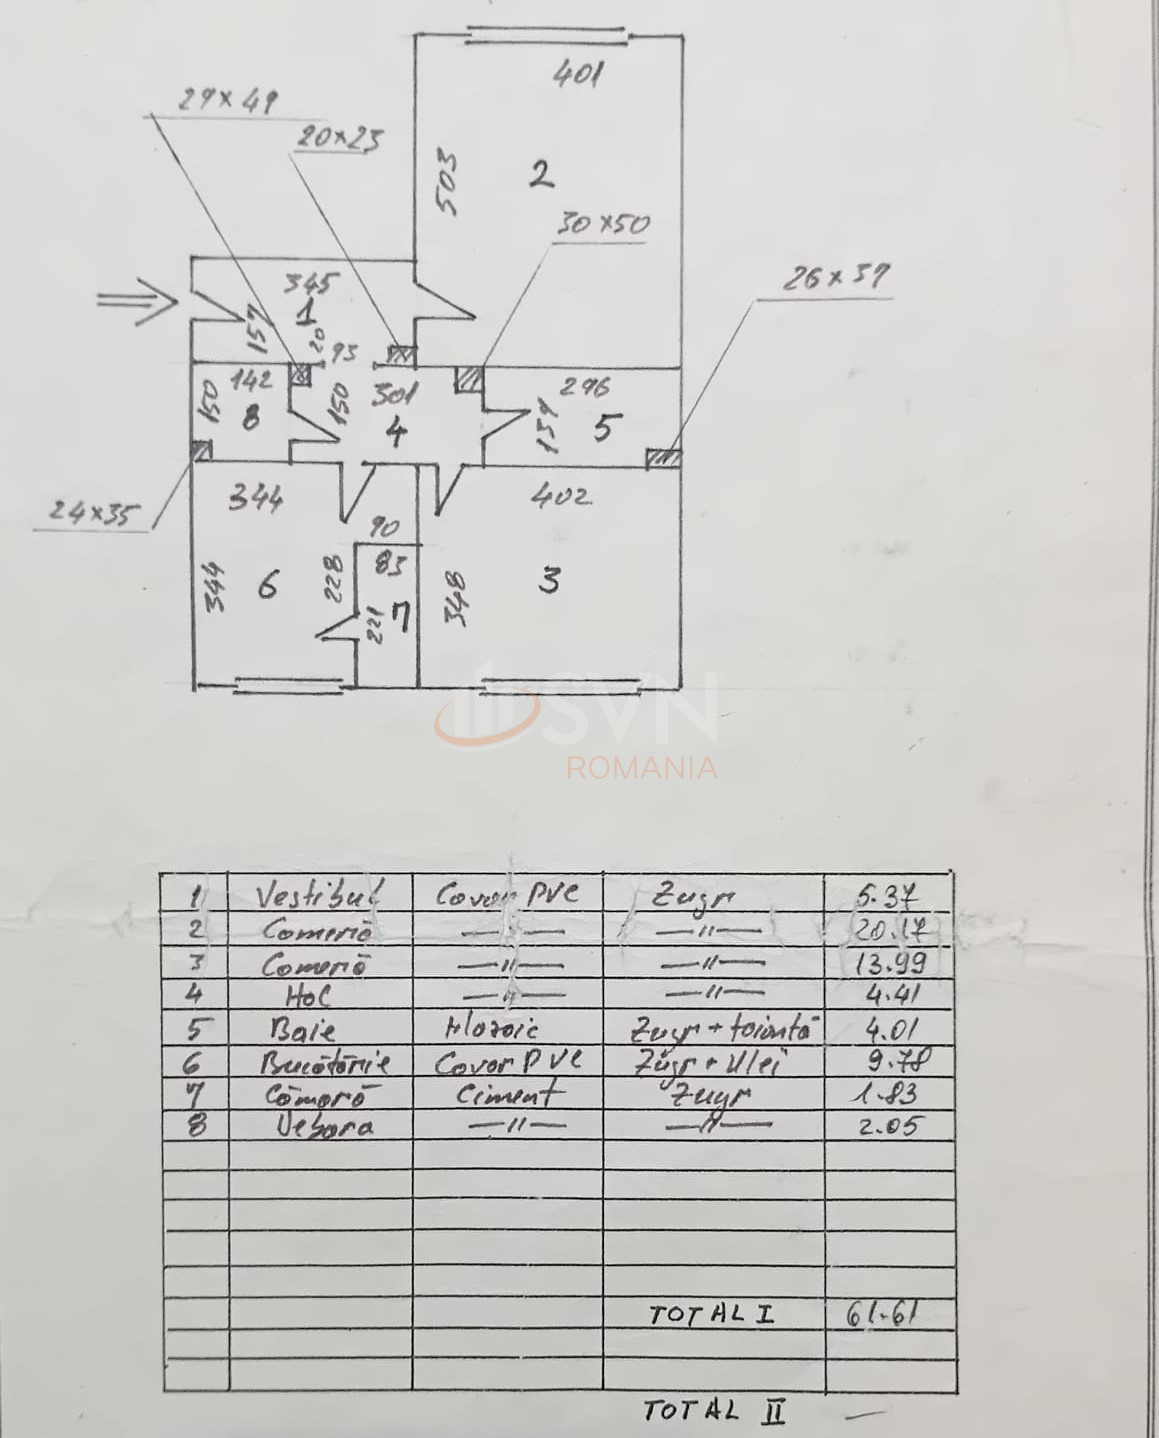 401
29×49
20×23
503
2
30×50
26×39
345
1
157
20
93
142
150
8
150
301
4
296
139
5
24×35
344
344
6
90
228
83
221
7
402
348
3
SVN
ROMANIA
1 Vestibul Covor PVC Zugr 5.37
2 Cameră —〃— —〃— 20.17
3 Cameră —〃— —〃— 13.99
4 Hol —〃— —〃— 4.41
5 Baie Mozaic Zugr + faianță 4.01
6 Bucătărie Covor PVC Zugr + Ulei 9.78
7 Cămară Ciment Zugr 1.83
8 Debara —〃— —〃— 2.05
TOTAL I 61.61
TOTAL II —